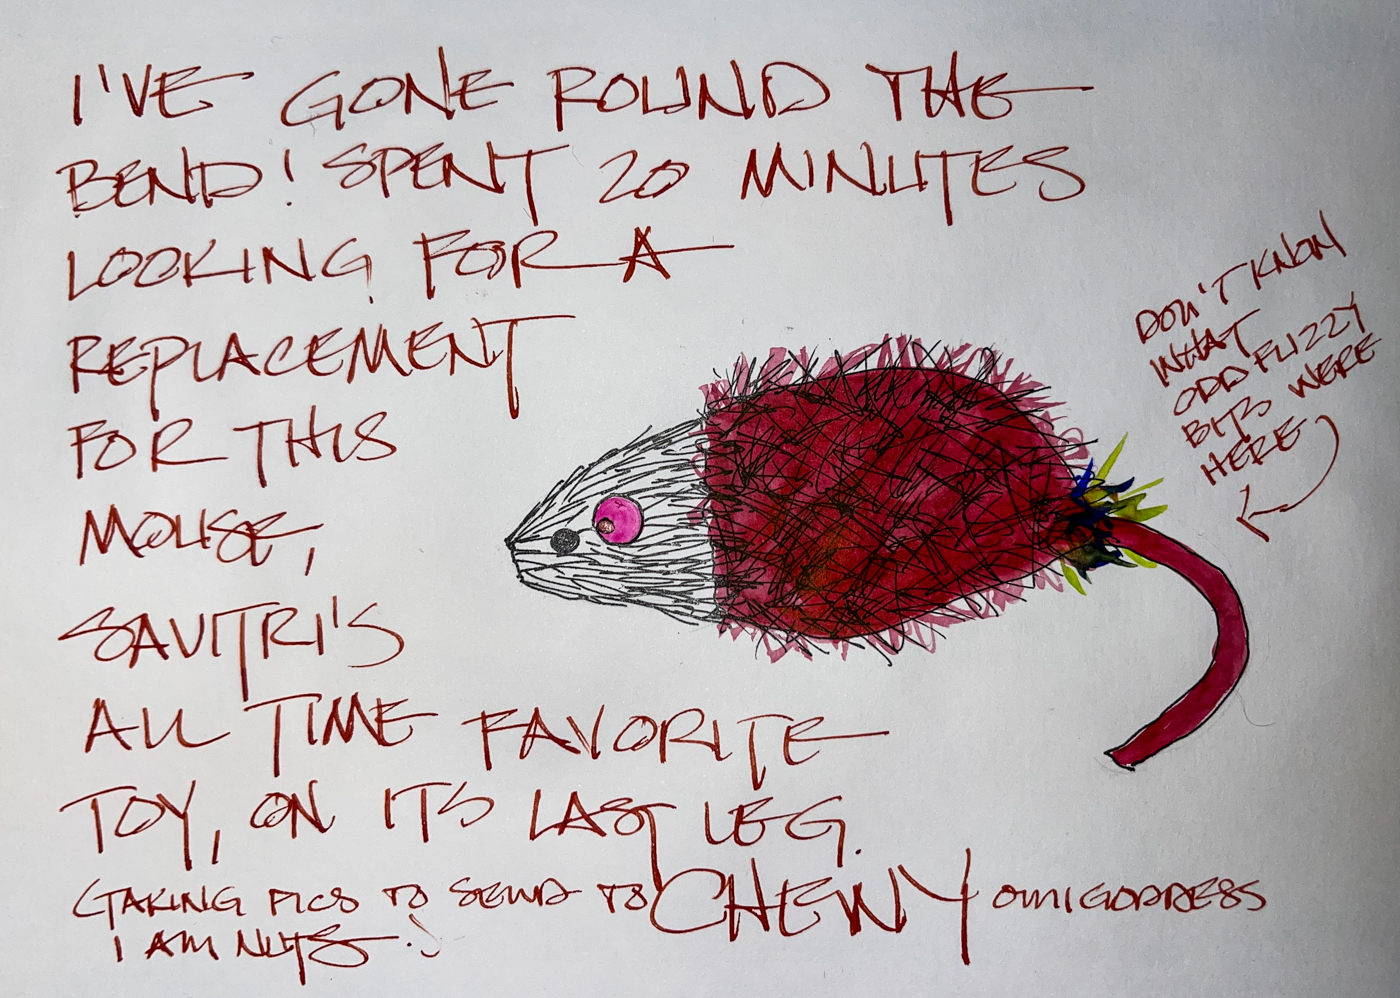 I'VE GONE ROUND THE
BEND! SPENT 20 MINUTES
LOOKING FOR A
REPLACEMENT
FOR THIS
MOUSE,
SAVITRI'S
ALL TIME FAVORITE
TOY, ON ITS LAST LEG.
(TAKING PICS TO SEND TO CHEWY OMIGODDESS
I AM NUTS!)
DON'T KNOW
WHAT
ODD FUZZY
BITS WERE
HERE